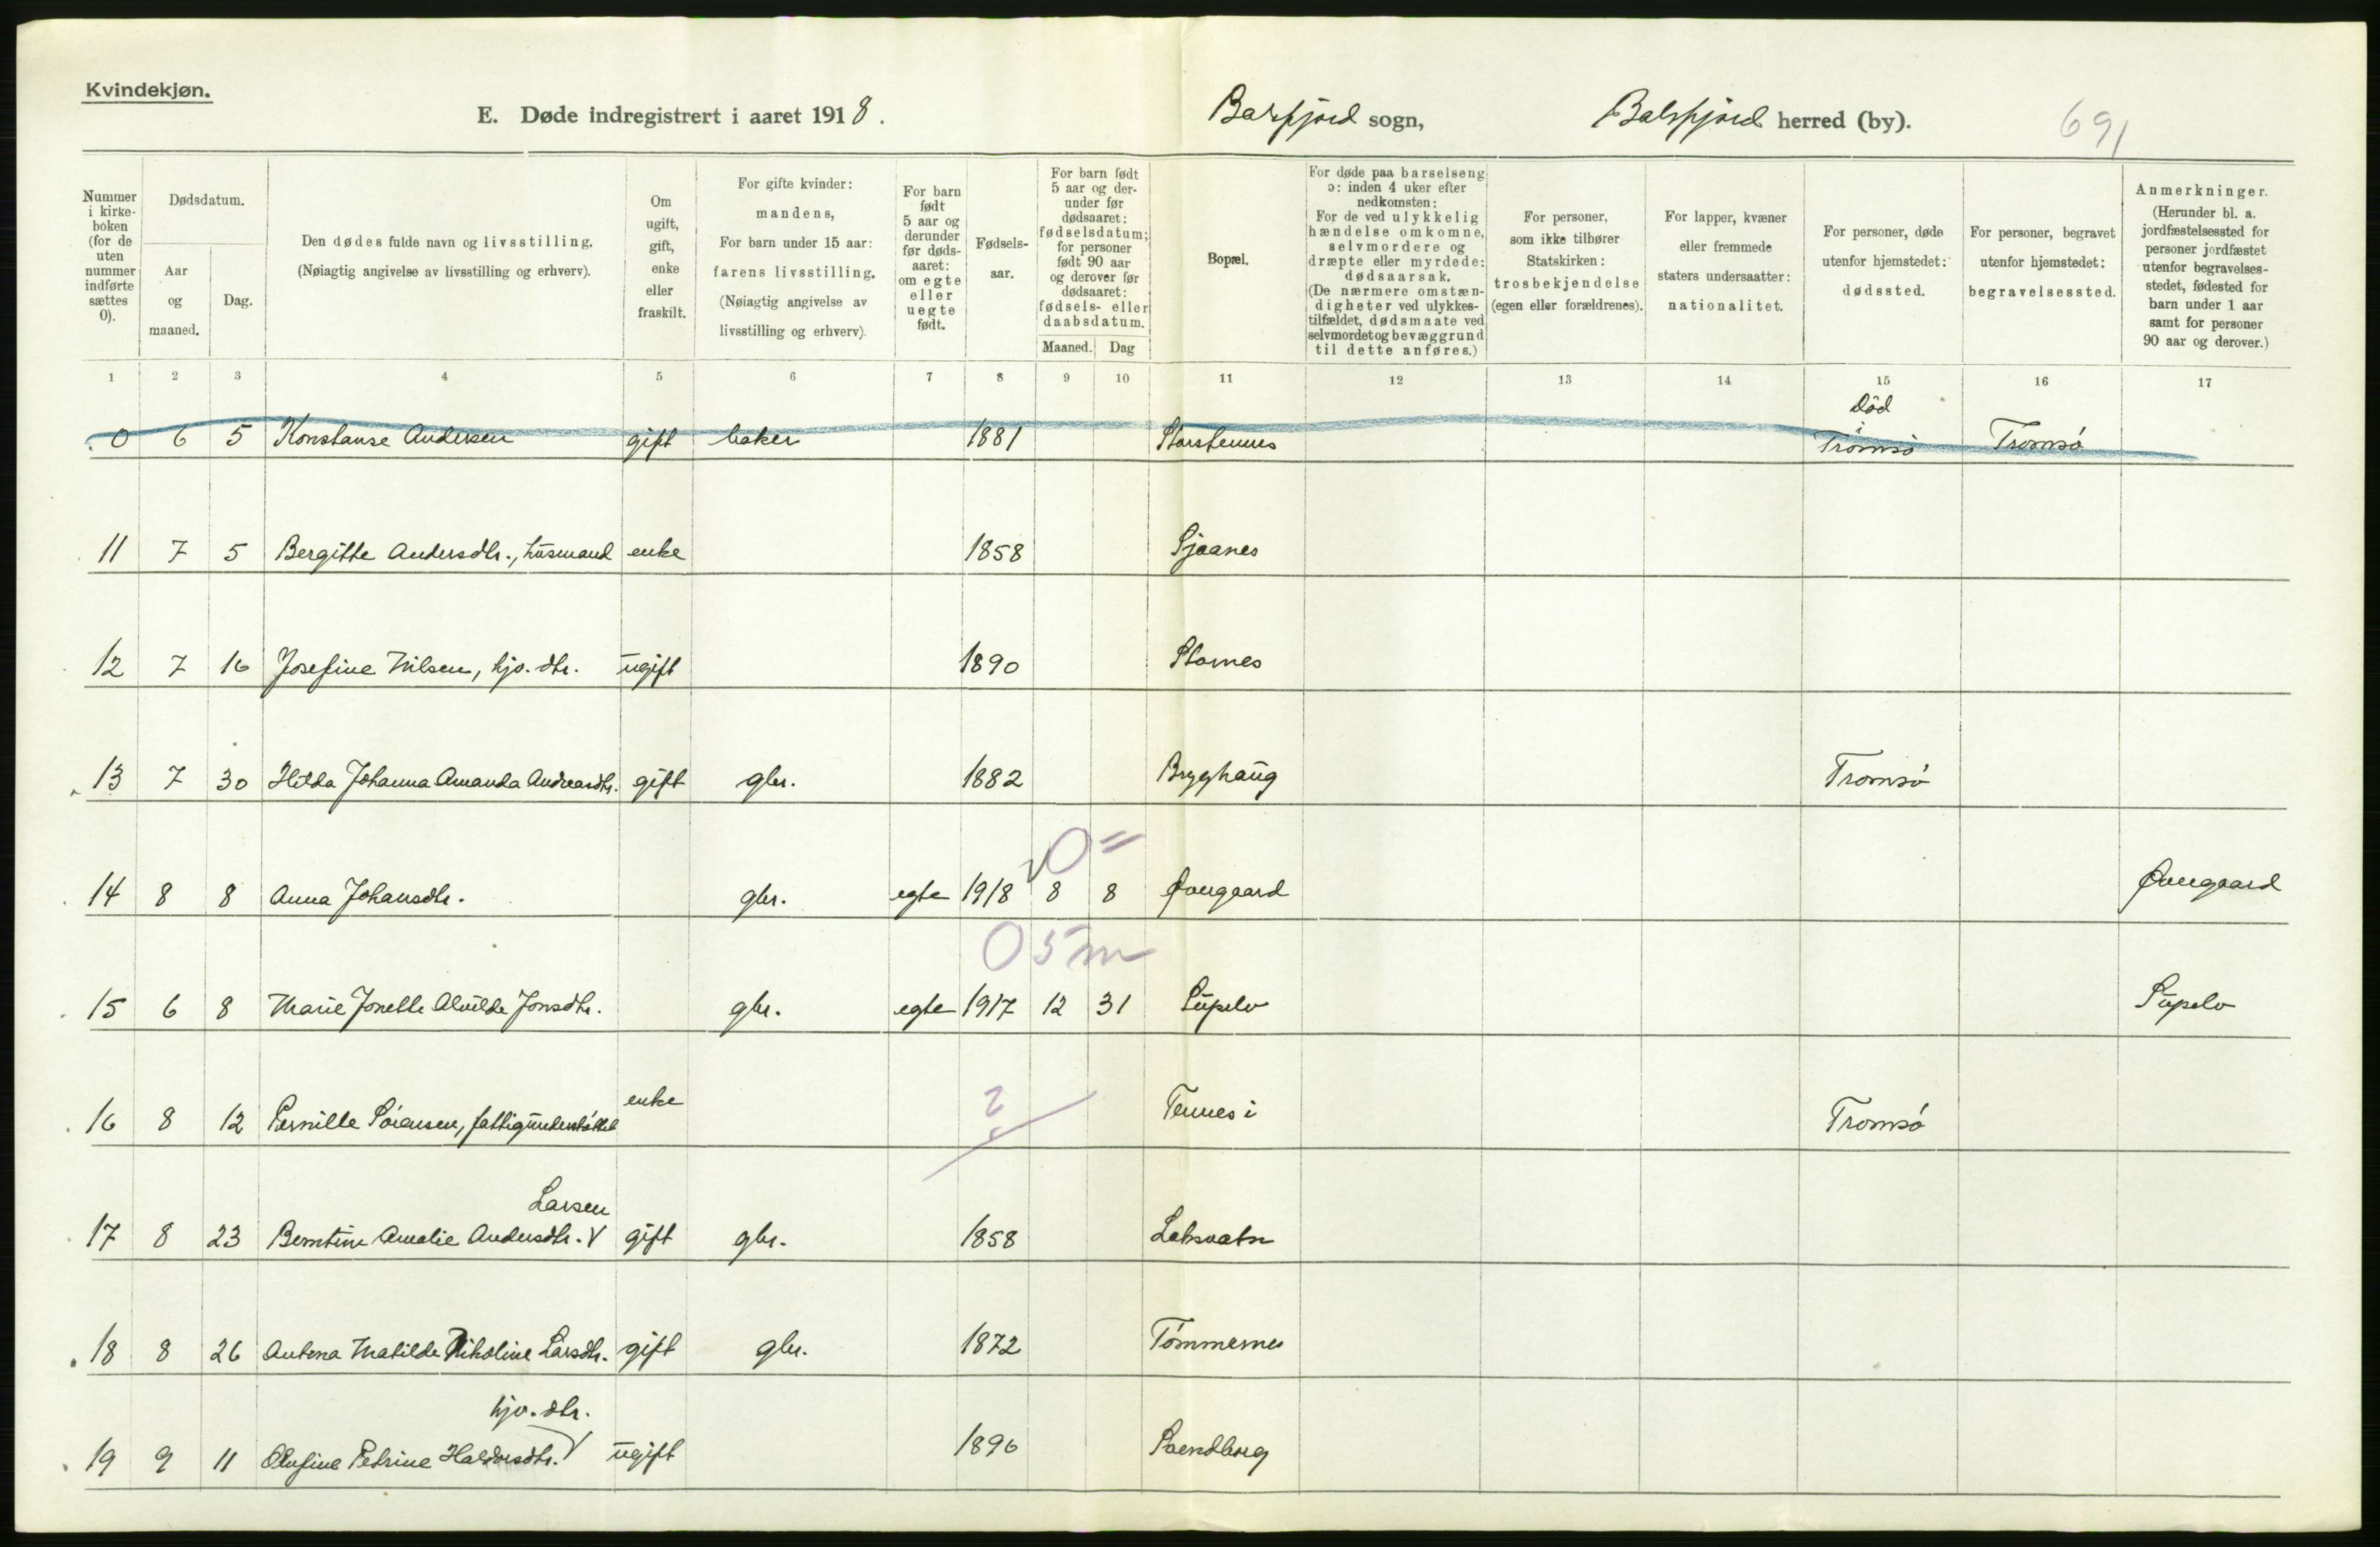 Kvindekjøn.
E. Døde indregistrert i aaret 1918. Balsfjord sogn, Balsfjord herred (by). 691
Nummer i kirke-boken (for de uten nummer indførte sættes 0).
Dødsdatum.
Aar og maaned.
Dag.
Den dødes fulde navn og livsstilling.
(Nøiagtig angivelse av livsstilling og erhverv).
Om ugift, gift, enke eller fraskilt.
For gifte kvinder: mandens,
For barn under 15 aar: farens livsstilling.
(Nøiagtig angivelse av livsstilling og erhverv).
For barn født 5 aar og derunder før døds-aaret: om egte eller uegte født.
Fødsels-aar.
For barn født 5 aar og der-under før dødsaaret: fødselsdatum; for personer født 90 aar og derover før dødsaaret: fødsels- eller daabsdatum.
Maaned. Dag
Bopæl.
For døde paa barselseng ɔ: inden 4 uker efter nedkomsten:
For de ved ulykkelig hændelse omkomne, selvmordere og dræpte eller myrdede: dødsaarsak.
(De nærmere omstæn-digheter ved ulykkes-tilfældet, dødsmaate ved selvmordet og bevæggrund til dette anføres.)
For personer, som ikke tilhører Statskirken: trosbekjendelse (egen eller forældrenes).
For lapper, kvæner eller fremmede staters undersaatter: nationalitet.
For personer, døde utenfor hjemstedet: dødssted.
For personer, begravet utenfor hjemstedet: begravelsessted.
Anmerkninger.
(Herunder bl. a. jordfæstelsessted for personer jordfæstet utenfor begravelses-stedet, fødested for barn under 1 aar samt for personer 90 aar og derover.)
1 2 3 4 5 6 7 8 9 10 11 12 13 14 15 16 17
Død
0 6 5 Konstanse Andersen gift baker 1881 Storstennes i Tromsø Tromsø
11 7 5 Bergitte Andersdtr., husmand enke 1858 Sjaanes
12 7 16 Josefine Nilsen, hjv. dtr. ugift 1890 Stornes
13 7 30 Hilda Johanna Amanda Andreasdtr. gift gbr. 1882 Brygghaug Tromsø
0
14 8 8 Anna Johansdtr. gbr. egte 1918 8 8 Øvergaard Øvergaard
0 5 m
15 6 8 Marie Jonette Alvilde Jonsdtr. gbr. egte 1917 12 31 Süpelv Süpelv
enke
16 8 12 Pernille Sørensen, fattigunderstøttet ? Tennes i Tromsø
Larsen
17 8 23 Berntine Amalie Andersdtr. V gift gbr. 1858 Laksvatn
18 8 26 Antona Matilde Nikoline Larsdtr. gift gbr. 1872 Tømmernes
hjv. dtr.
19 9 11 Olufine Petrine Haldorsdtr. V ugift 1896